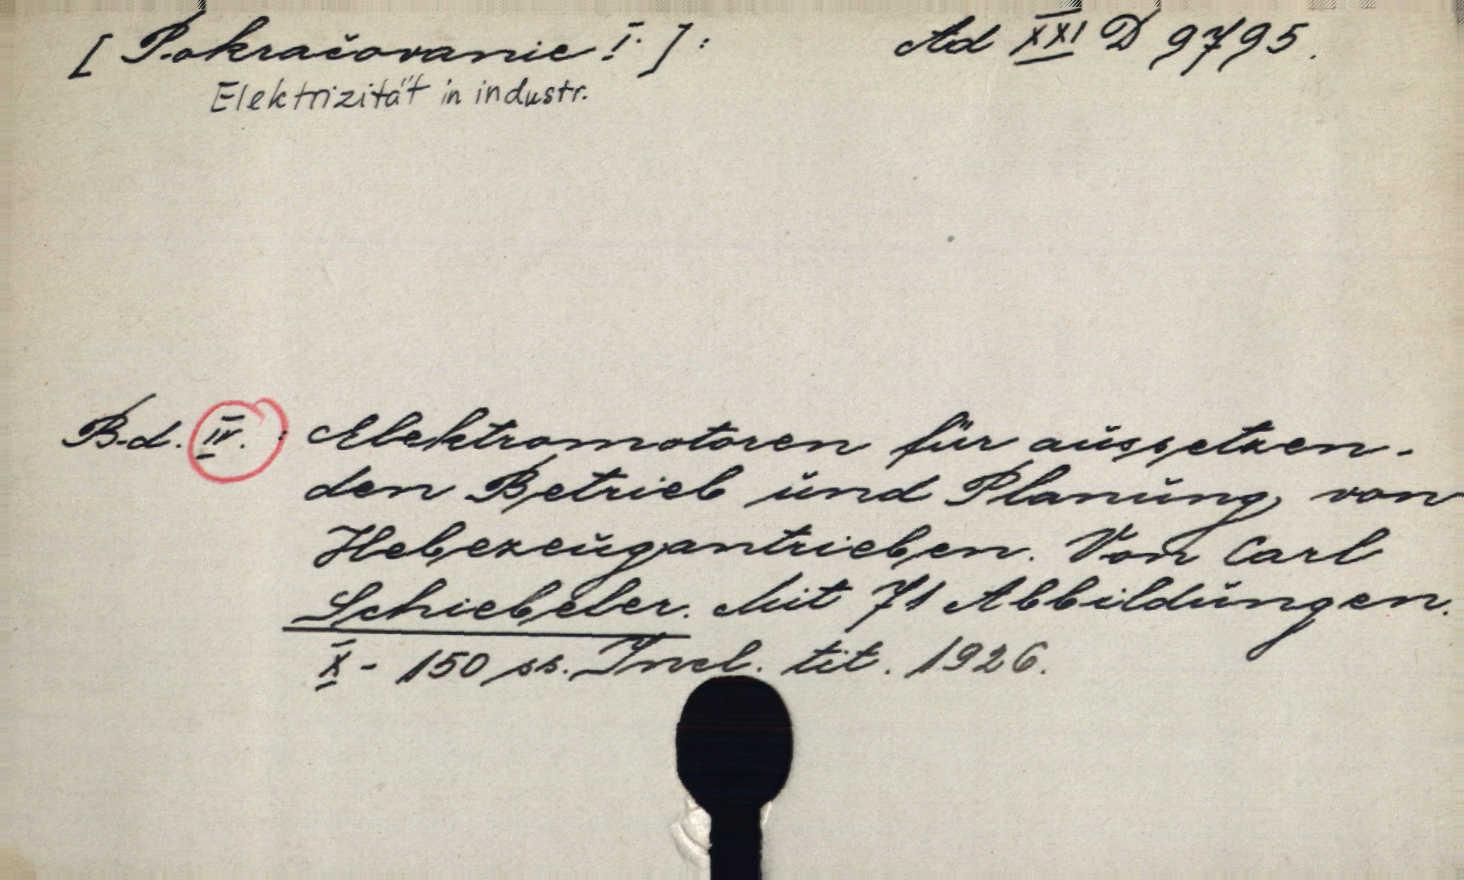 [Pokračovanie I.]: Ad XXI D 9795.
Elektrizität in industr.
Bd. IV. : Elektromotoren für aussetzen-
den Betrieb und Planung von
Hebezeugantrieben. Von Carl
Schiebeler. Mit 71 Abbildungen.
X - 150 ss. Incl. tit. 1926.